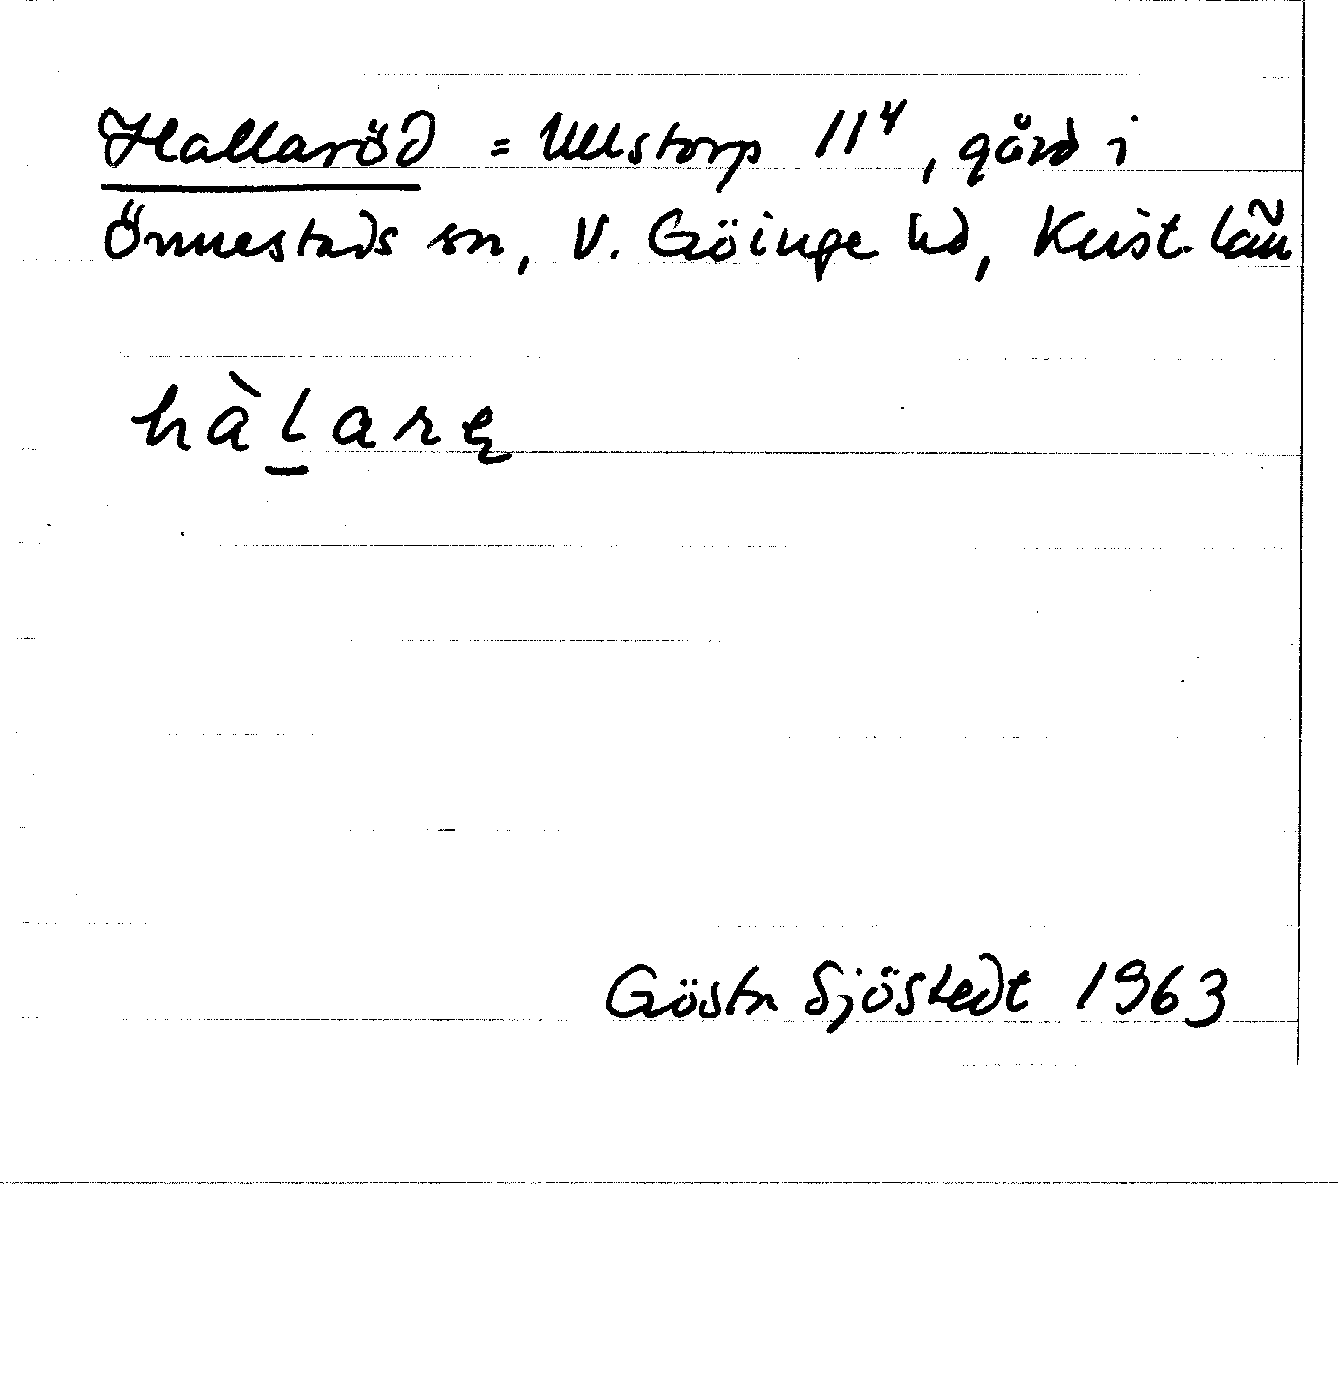 Hallaröd = Ullstorp 11⁴, gård i
Önnestads sn, V. Göinge hd, Krist. län
hàl̲arę
Gösta Sjöstedt 1963